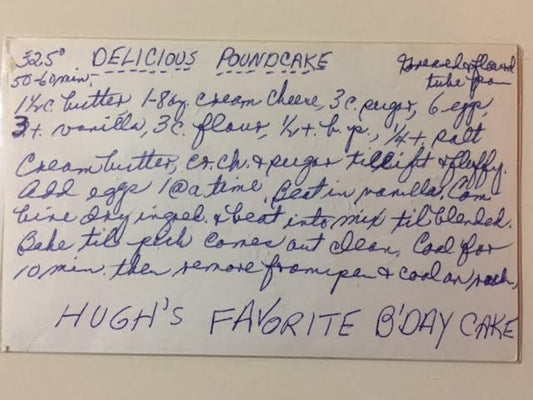 325° DELICIOUS POUNDCAKE Greased & floured
50-60 min. tube pan
1½ c. butter 1-8oz. cream cheese, 3 c. sugar, 6 eggs,
3 t. vanilla, 3 c. flour, ½ t. b.p., ¼ t. salt
Cream butter, cr. ch. & sugar til light & fluffy.
Add eggs 1 @ a time. Beat in vanilla. Com
bine dry ingred. & beat into mix til blended.
Bake til pick comes out clean. Cool for
10 min. then remove from pan & cool on rack.
HUGH'S FAVORITE B'DAY CAKE